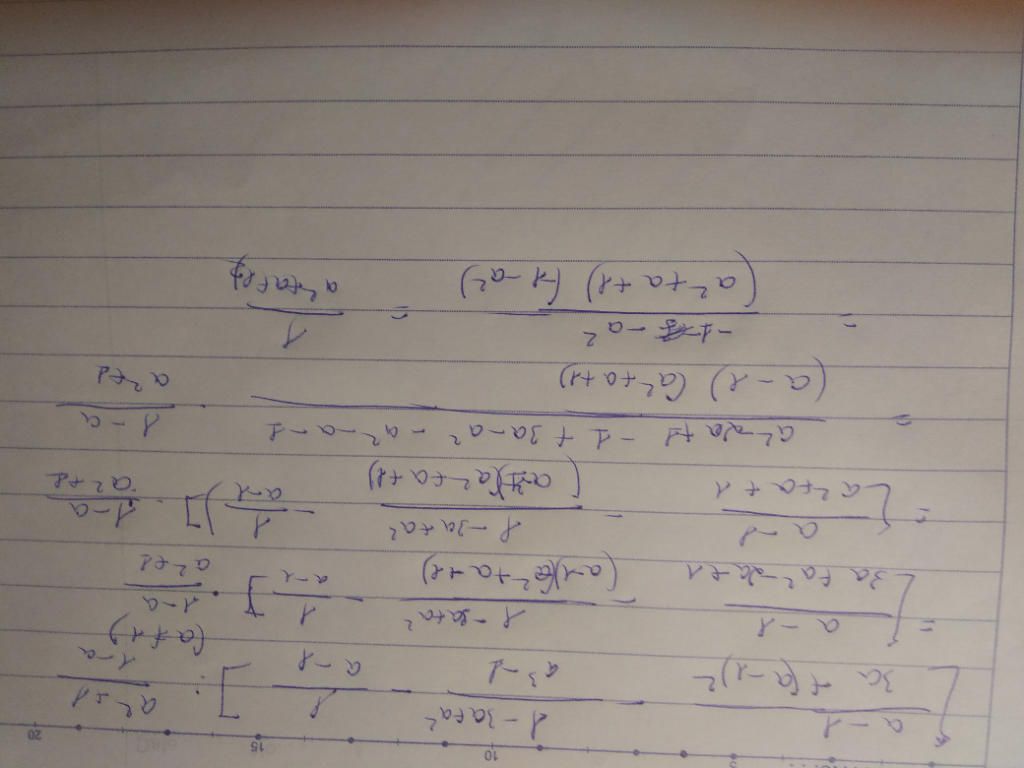 5 10 15 20
[ (a-1)/(3a+(a-1)²) - (1-3a+a²)/(a³-1) - 1/(a-1) ] : (a²+1)/(1-a)
(a≠1)
= [ (a-1)/(3a+a²-2a+1) - (1-3a+a²)/((a-1)(a²+a+1)) - 1/(a-1) ] · (1-a)/(a²+1)
= [ (a-1)/(a²+a+1) - (1-3a+a²)/((a-1)(a²+a+1)) - 1/(a-1) ) ] · (1-a)/(a²+1)
= (a²-2a+1-1+3a-a²-a²-a-1)/((a-1)(a²+a+1)) · (1-a)/(a²+1)
= (-1-a²)/((a²+a+1)(-1-a²)) = 1/(a²+a+1)